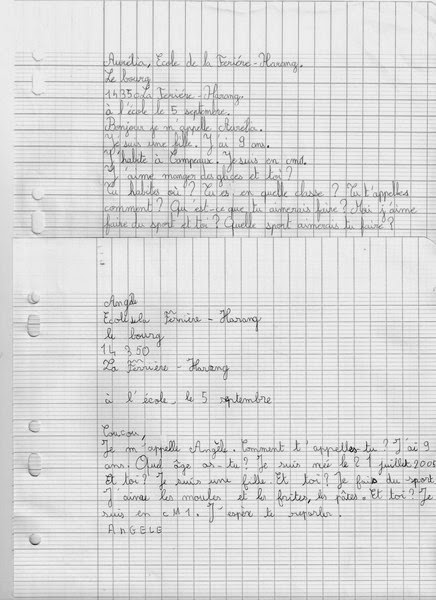 Aurélia, Ecole de la Feriére-Harang.
Le bourg
14350 La Feriére-Harang.
à l'école le 5 septembre.
Bonjour je m'appelle Aurélia.
Je suis une fille. J'ai 9 ans.
J'habite à Campeaux. Je suis en cm1.
J'aime manger des et toi ?
Tu habites où ? Tu es en quelle classe ? Tu t'appelles
comment ? Qu'est-ce que tu aimerais faire ? Moi j'aime
faire du sport et toi ? Quelle sport aimerais tu faire ?
Angèle
Ecole de la Ferrière - Harang
le bourg
14 350
La Ferrière - Harang
à l'école, le 5 septembre
Coucou,
Je m'appelle Angèle. Comment t'appelles tu ? J'ai 9
ans. Quel âge as-tu ? Je suis née le 21 juillet
Et toi ? Je suis une fille. Et toi ? Je fais du sport.
J'aime les moules et les frites, les pâtes. Et toi ? Je
suis en CM1. J'espère te reparler.
ANGELE